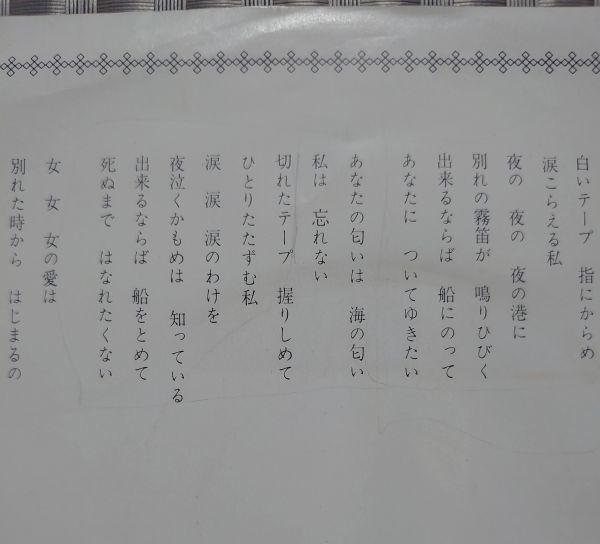 白いテープ　指にからめ
涙こらえる私
夜の　夜の　夜の港に
別れの霧笛が　鳴りひびく
出来るならば　船にのって
あなたに　ついてゆきたい
あなたの匂いは　海の匂い
私は　忘れない
切れたテープ　握りしめて
ひとりたたずむ私
涙　涙　涙のわけを
夜泣くかもめは　知っている
出来るならば　船をとめて
死ぬまで　はなれたくない
女　女　女の愛は
別れた時から　はじまるの